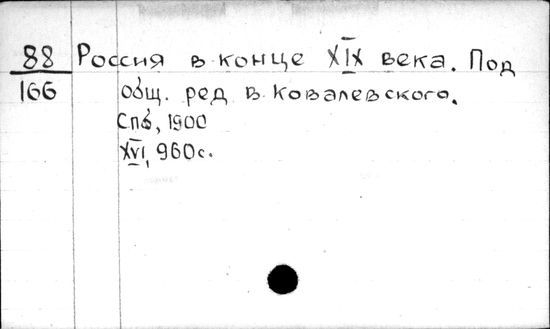 88 Россия в конце XIX века. Под
166 общ. ред В. Ковалевского.
Спб, 1900
XVI, 960с.